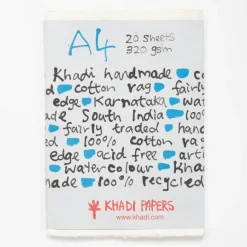 A4 20 sheets
320 gsm
Khadi handmade co
d cotton rag fairly
edge Karnataka wat
made South India 100
fairly traded hand
100% cotton rag
edge acid free arti
watercolour Kha
made 100% recycled
KHADI PAPERS
www.khadi.com